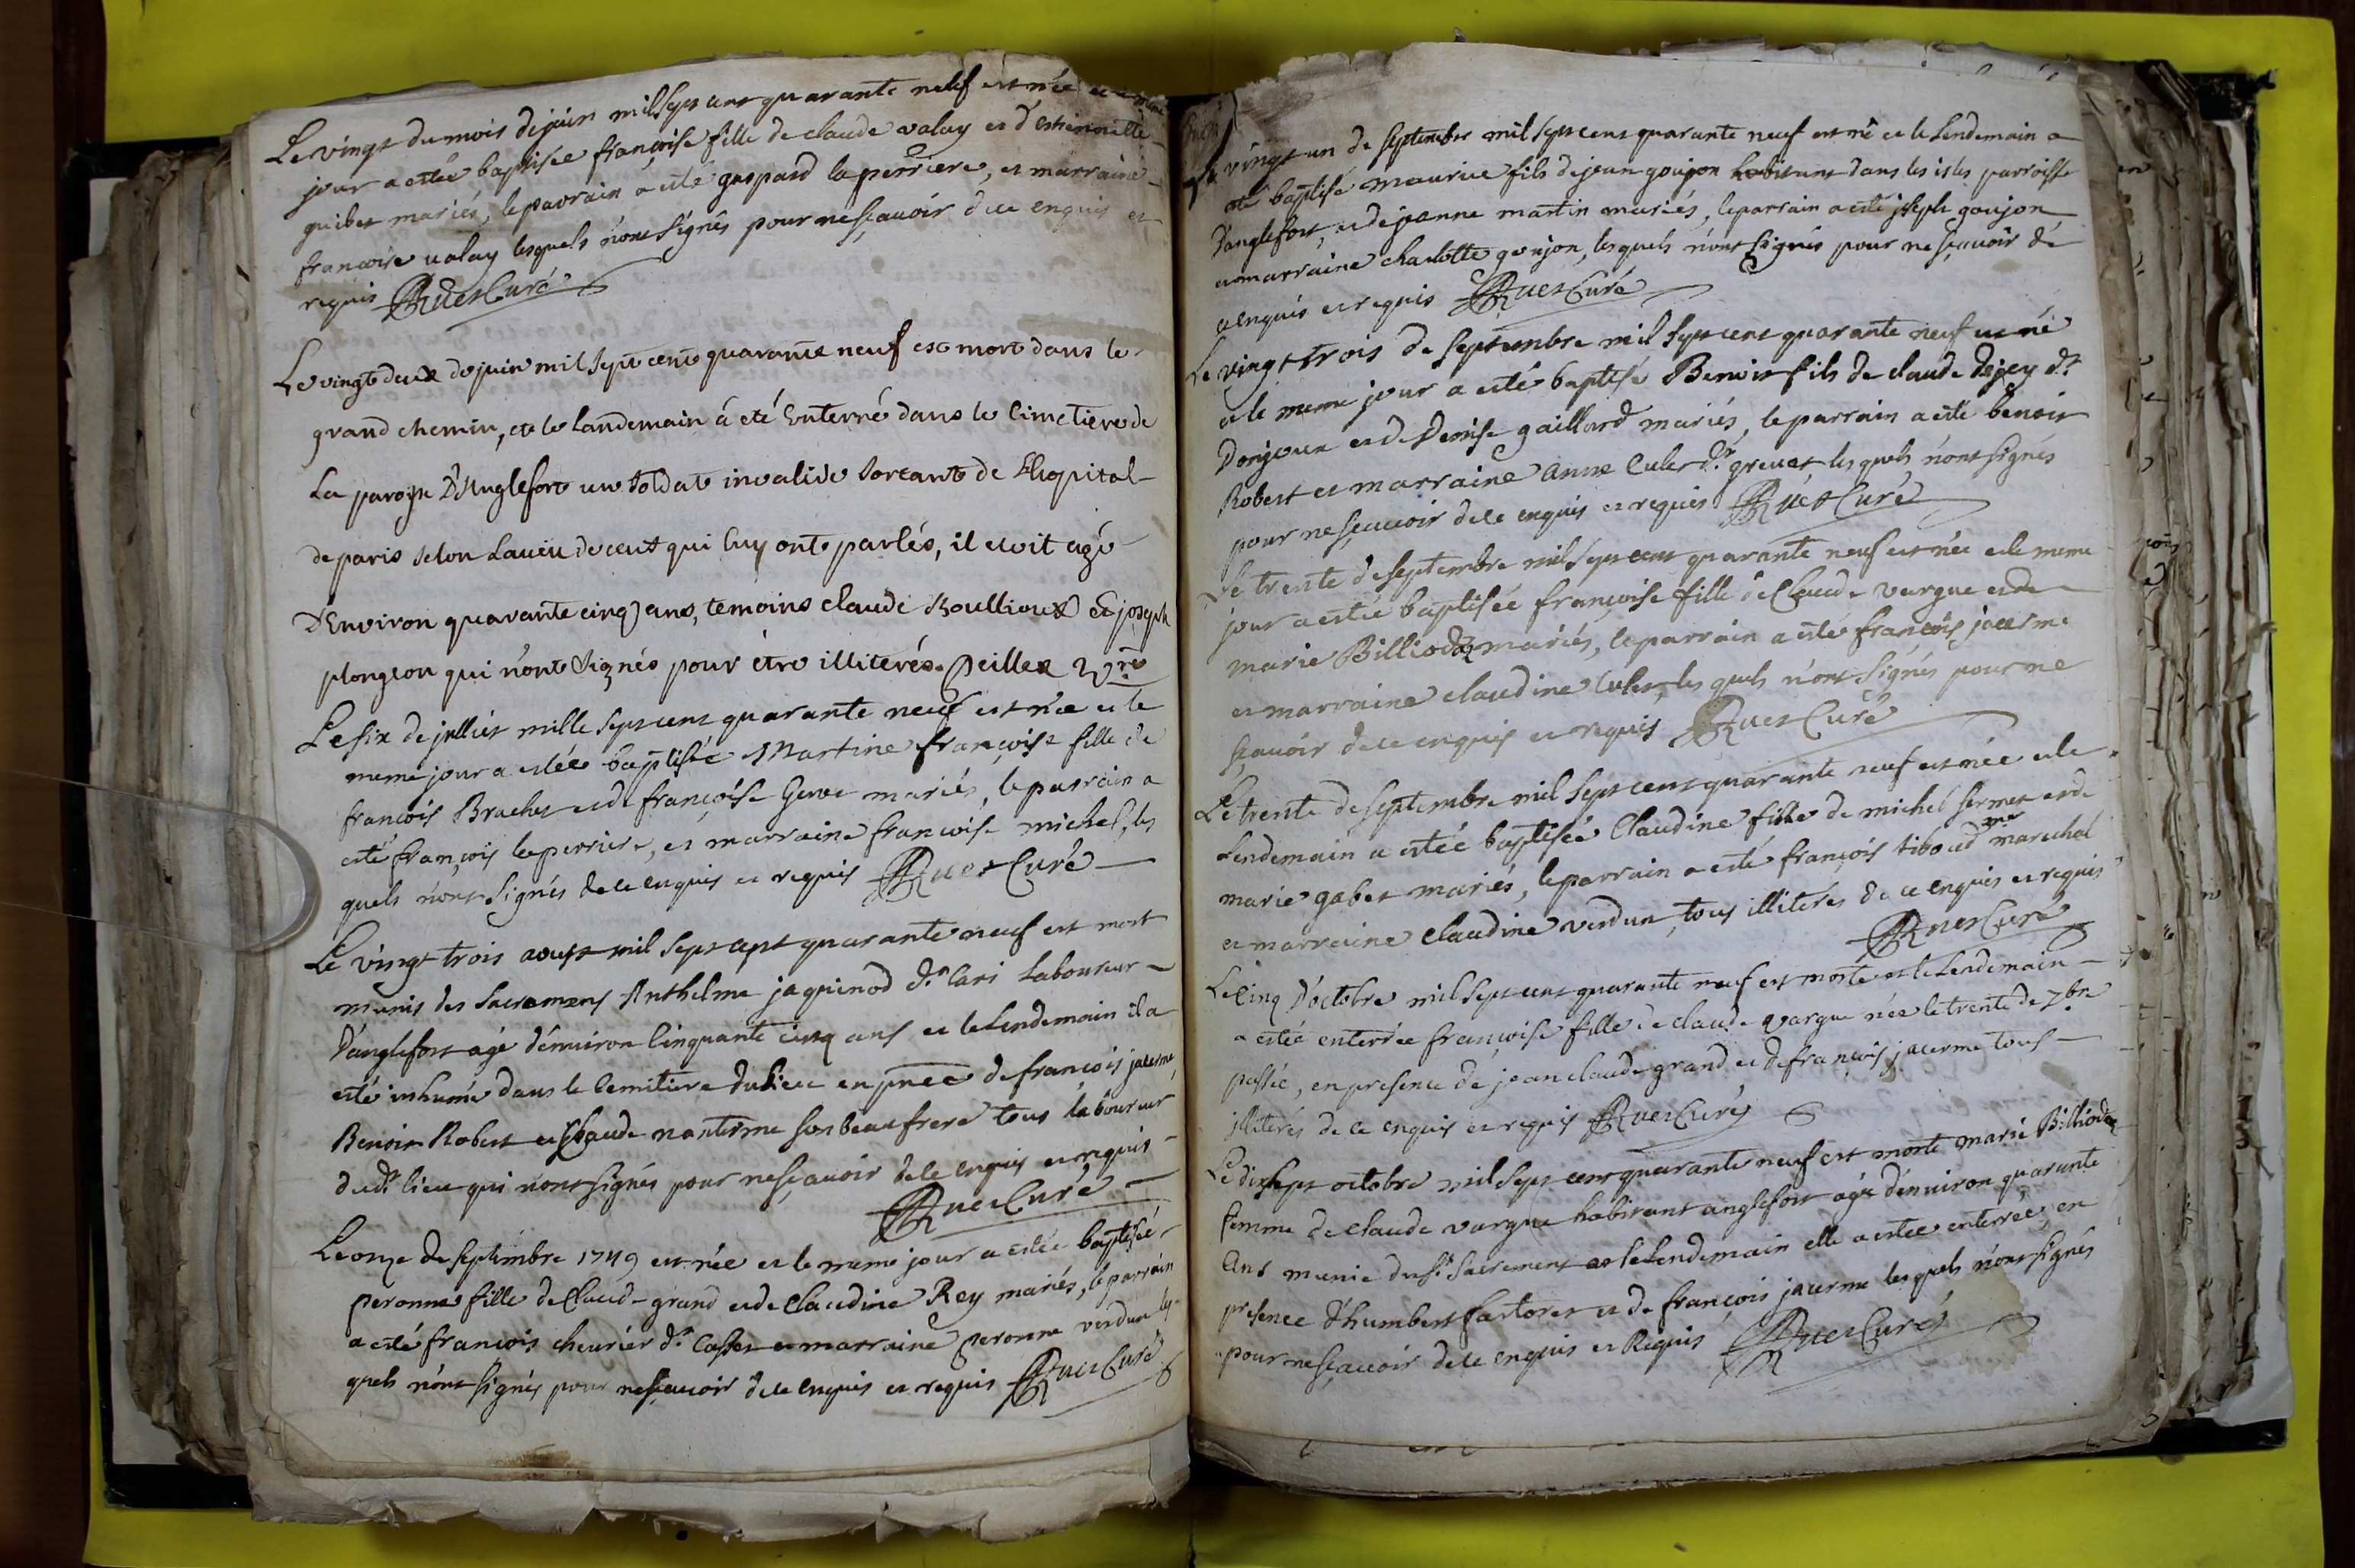 Le vingt du mois de juin mil sept cent quarante neuf est née et le meme
jour a estée baptisée françoise fille de claude valay et d'estiennette
guibet mariés, le parrain a esté gaspard laperriere, et marraine
francoise valay lesquels n'ont signés pour ne sçavoir de ce enquis et
requis Ruet Curé
Le vingt deux de juin mil sept cent quarante neuf est mort dans le
grand chemin, et le landemain á eté Enterré dans le Cimetiere de
La paroisse D'Anglefort un soldat invalide sortant de L'hopital
de paris selon L'aveu de ceux qui luy ont parlés, il etoit agé
D'Environ quarante cinq ans, temoins claude Roullioux et joseph
plongeon qui n'ont signés pour être illiterés. Peillex vre
Le six de jullet mille sept cent quarante neuf est née et le
meme jour a estée baptisée Martine françoise fille de
françois Brachet et de françoise Genoz mariés, le parrain a
esté françois laperriere, et marraine francoise michel, les
quels n'ont signés de ce enquis et requis Ruet Curé
Le vingt trois aoust mil sept cept quarante neuf est mort
munis des sacremens Anthelme jaquinod dt Cari Laboureur
D'anglefort agé d'enuiron Cinquante cinq ans et le Lendemain il a
esté inhumé dans le Cemitiere du Lieu en pnce de francois jacerme
Benoit Robert et Claude nanterme son beaufrere tous laboureur
dudt lieu qui n'ont signés pour ne sçavoir de ce enquis et requis
Ruet Curé
Le onze de septembre 1749 est née et le meme jour a estée baptisée
peronne fille de Claude grand et de Claudine Rey mariés, le parrain
a esté francois cheurier dt Casset et marraine peronne verdun les
quels n'ont signés pour ne sçavoir de ce enquis et requis Ruet Curé
vingt un de septembre mil sept cent quarante neuf est né et le Lendemain a
esté baptisé maurice fils de jean goujon habitant dans les isles parroisse
D'anglefort, et de jeanne martin mariés, le parrain a esté joseph goujon
et marraine charlotte goujon, lesquels n'ont signés pour ne sçavoir de
ce enquis et requis Ruet Curé
Le vingt trois de septembre mil sept cent quarante neuf est né
et le meme jour a esté baptisé Benoit fils de claude dejey dt
Donjoux et de Denise gaillard mariés, le parrain a esté benoit
Robert et marraine anne Culet dt greuat les quels n'ont signés
pour ne sçavoir de ce enquis et requis Ruet Curé
Le trente de septembre mil sept cent quarante neuf est née et le meme
jour a estée baptisée françoise fille de Claude vargue et de
marie Billiodaz mariés, le parrain a esté françois jacerme
et marraine claudine Culet, les quels n'ont signés pour ne
sçauoir de ce enquis et requis Ruet Curé
Le trente de septembre mil sept cent quarante neuf est née et le
Lendemain a estée baptisée Claudine fille de michel sermet et de
marie gabet mariés, le parrain a esté françois riboud me marechal
et marraine claudine verdun, tous illiterés de ce enquis et requis
Ruet Curé
Le cinq D'octobre mil sept cent quarante neuf est morte et le Lendemain
a estée enterrée francoise fille de claude vargue née le trente de 7bre
passée, en presence de jean claude grand et de françois jacerme tous
illiterés de ce enquis et requis Ruet Curé
Le dix sept octobre mil sept cent quarante neuf est morte marie Billiodaz
femme de claude vargue habitant anglefort agée d'enuiron quarante
Ans munie du st sacrement et le Lendemain elle a estée enterrée, en
presence d'humbert fastoret et de françois jacerme lesquels n'ont signés
pour ne sçauoir de ce enquis et Requis Ruet Curé